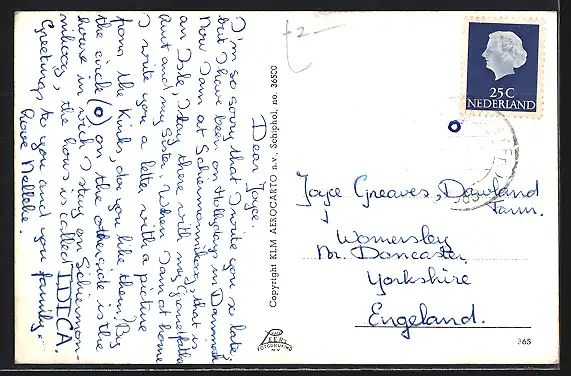 Dear Joyce.
I'm so sorry that I write you so late,
but I have been on Hollydays in Danmark
Now I am at Schiermonnikoog, that is
an Isle, I stay there with my Grandfather
Aunt and my Sister. When I am at home
I write you a letter with a picture
from the Kinks, do you like them? By
the circle (o) on the otherside is the
house in wich I stay on Schiermon-
nikoog, the hous is called IDECA.
Greetings to you and you family.
Love Nelleke.
Copyright KLM AEROCARTO n.v., Schiphol, no. 36500
t 2-
25 C
NEDERLAND
Joyce Greaves, Dawland
Farm.
Womersley
Nr. Doncaster
Yorkshire
Engeland.
FOTODRUKKERIJ
N.V.
365